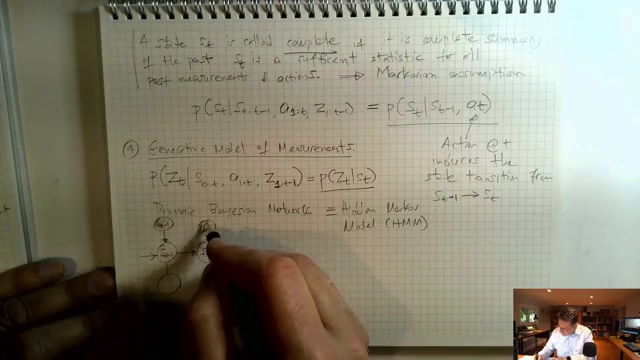 A state St is called complete if it is complete summary
of the past St is a sufficient statistic for all
past measurements & actions. ⟹ Markovian assumption
p(St | S0:t-1, a1:t, Z1:t-1) = p(St | St-1, at)
Action @ t
induces the
state transition from
St-1 → St
④ Generative Model of Measurements
p(Zt | S0:t, a1:t, Z1:t-1) = p(Zt | St)
Dynamic Bayesian Networks ≡ Hidden Markov
Model (HMM)